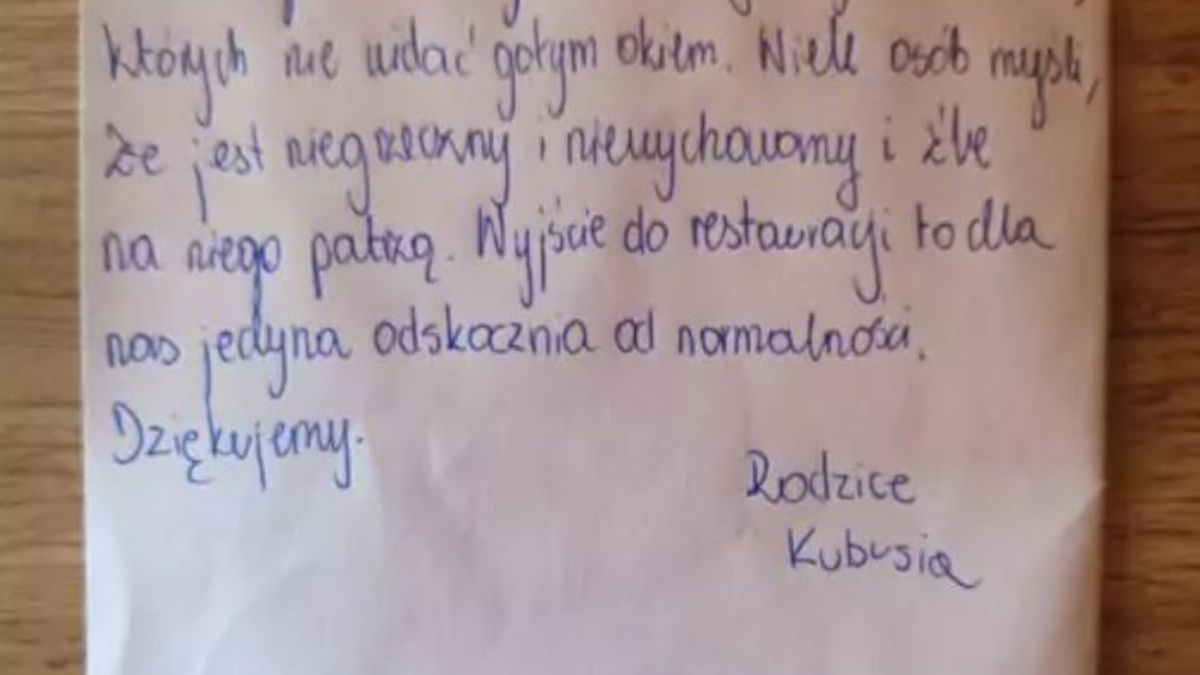 których nie widać gołym okiem. Wiele osób myśli,
że jest niegrzeczny i niewychowany i źle
na niego patrzą. Wyjście do restauracji to dla
nas jedyna odskocznia od normalności.
Dziękujemy.
Rodzice
Kubusia